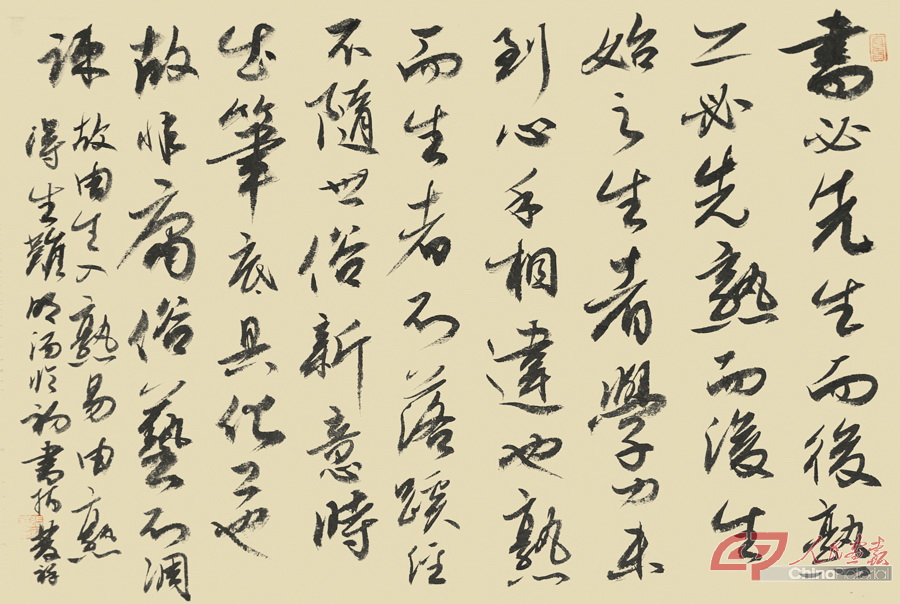 書必先生而後熟
亦必先熟而後生
始之生者學力未
到心手相違也熟
而生者不落蹊徑
不隨世俗新意時
出筆底具化工也
故非庸俗藝不凋
疎
故由生入熟易由熟
得生難明湯臨初書指
人民畫報
China Pictorial